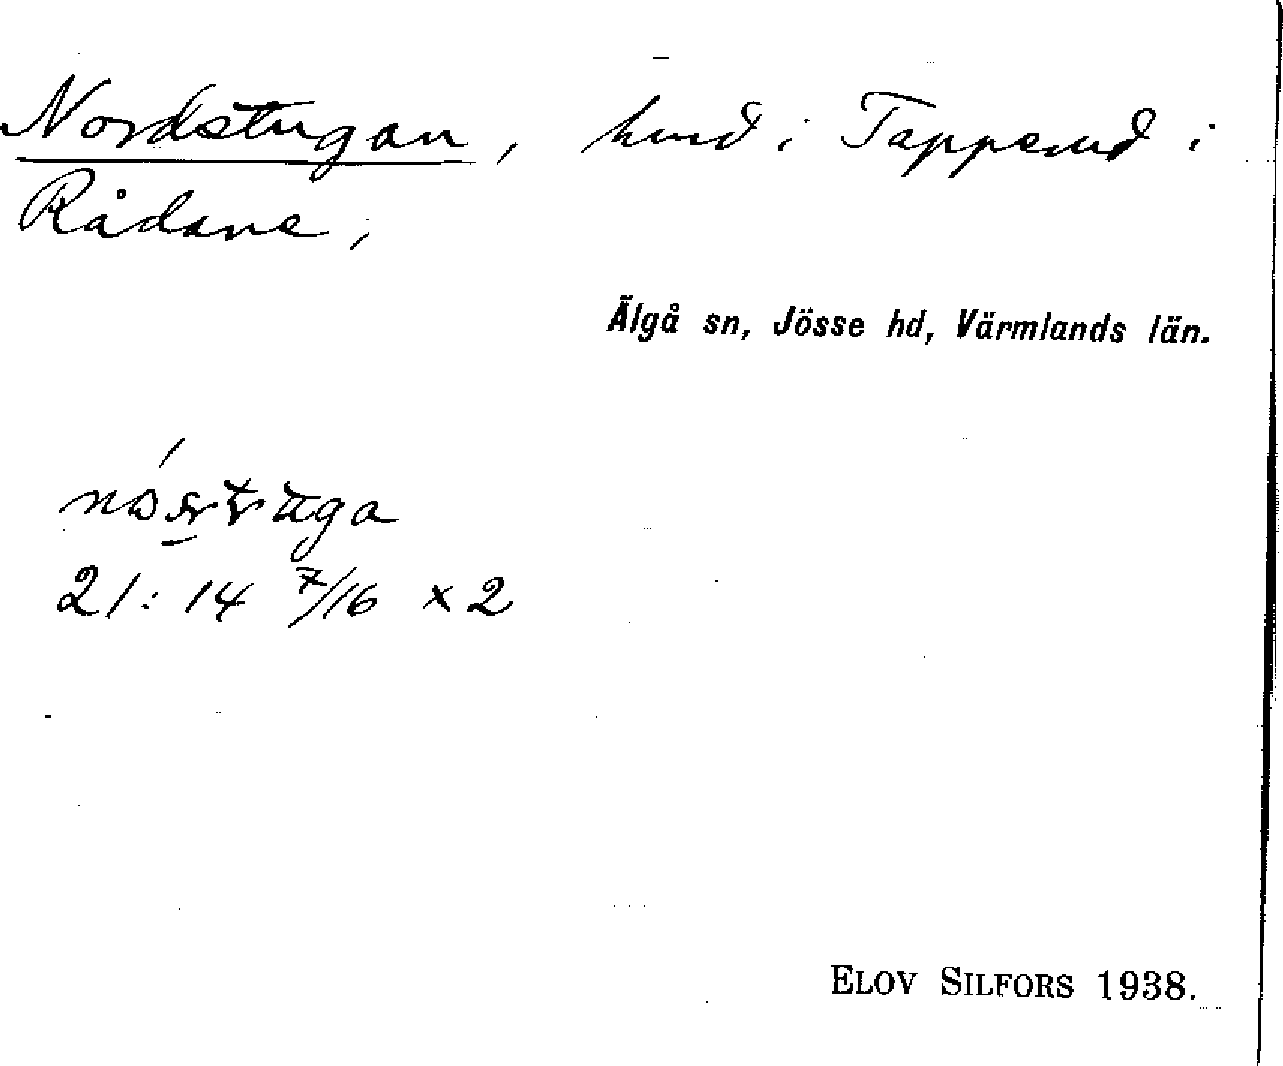 Nordstugan, hmd i Tapperud i
Rådane,
Älgå sn, Jösse hd, Värmlands län.
21:14 7/16 × 2
ELOV SILFORS 1938.